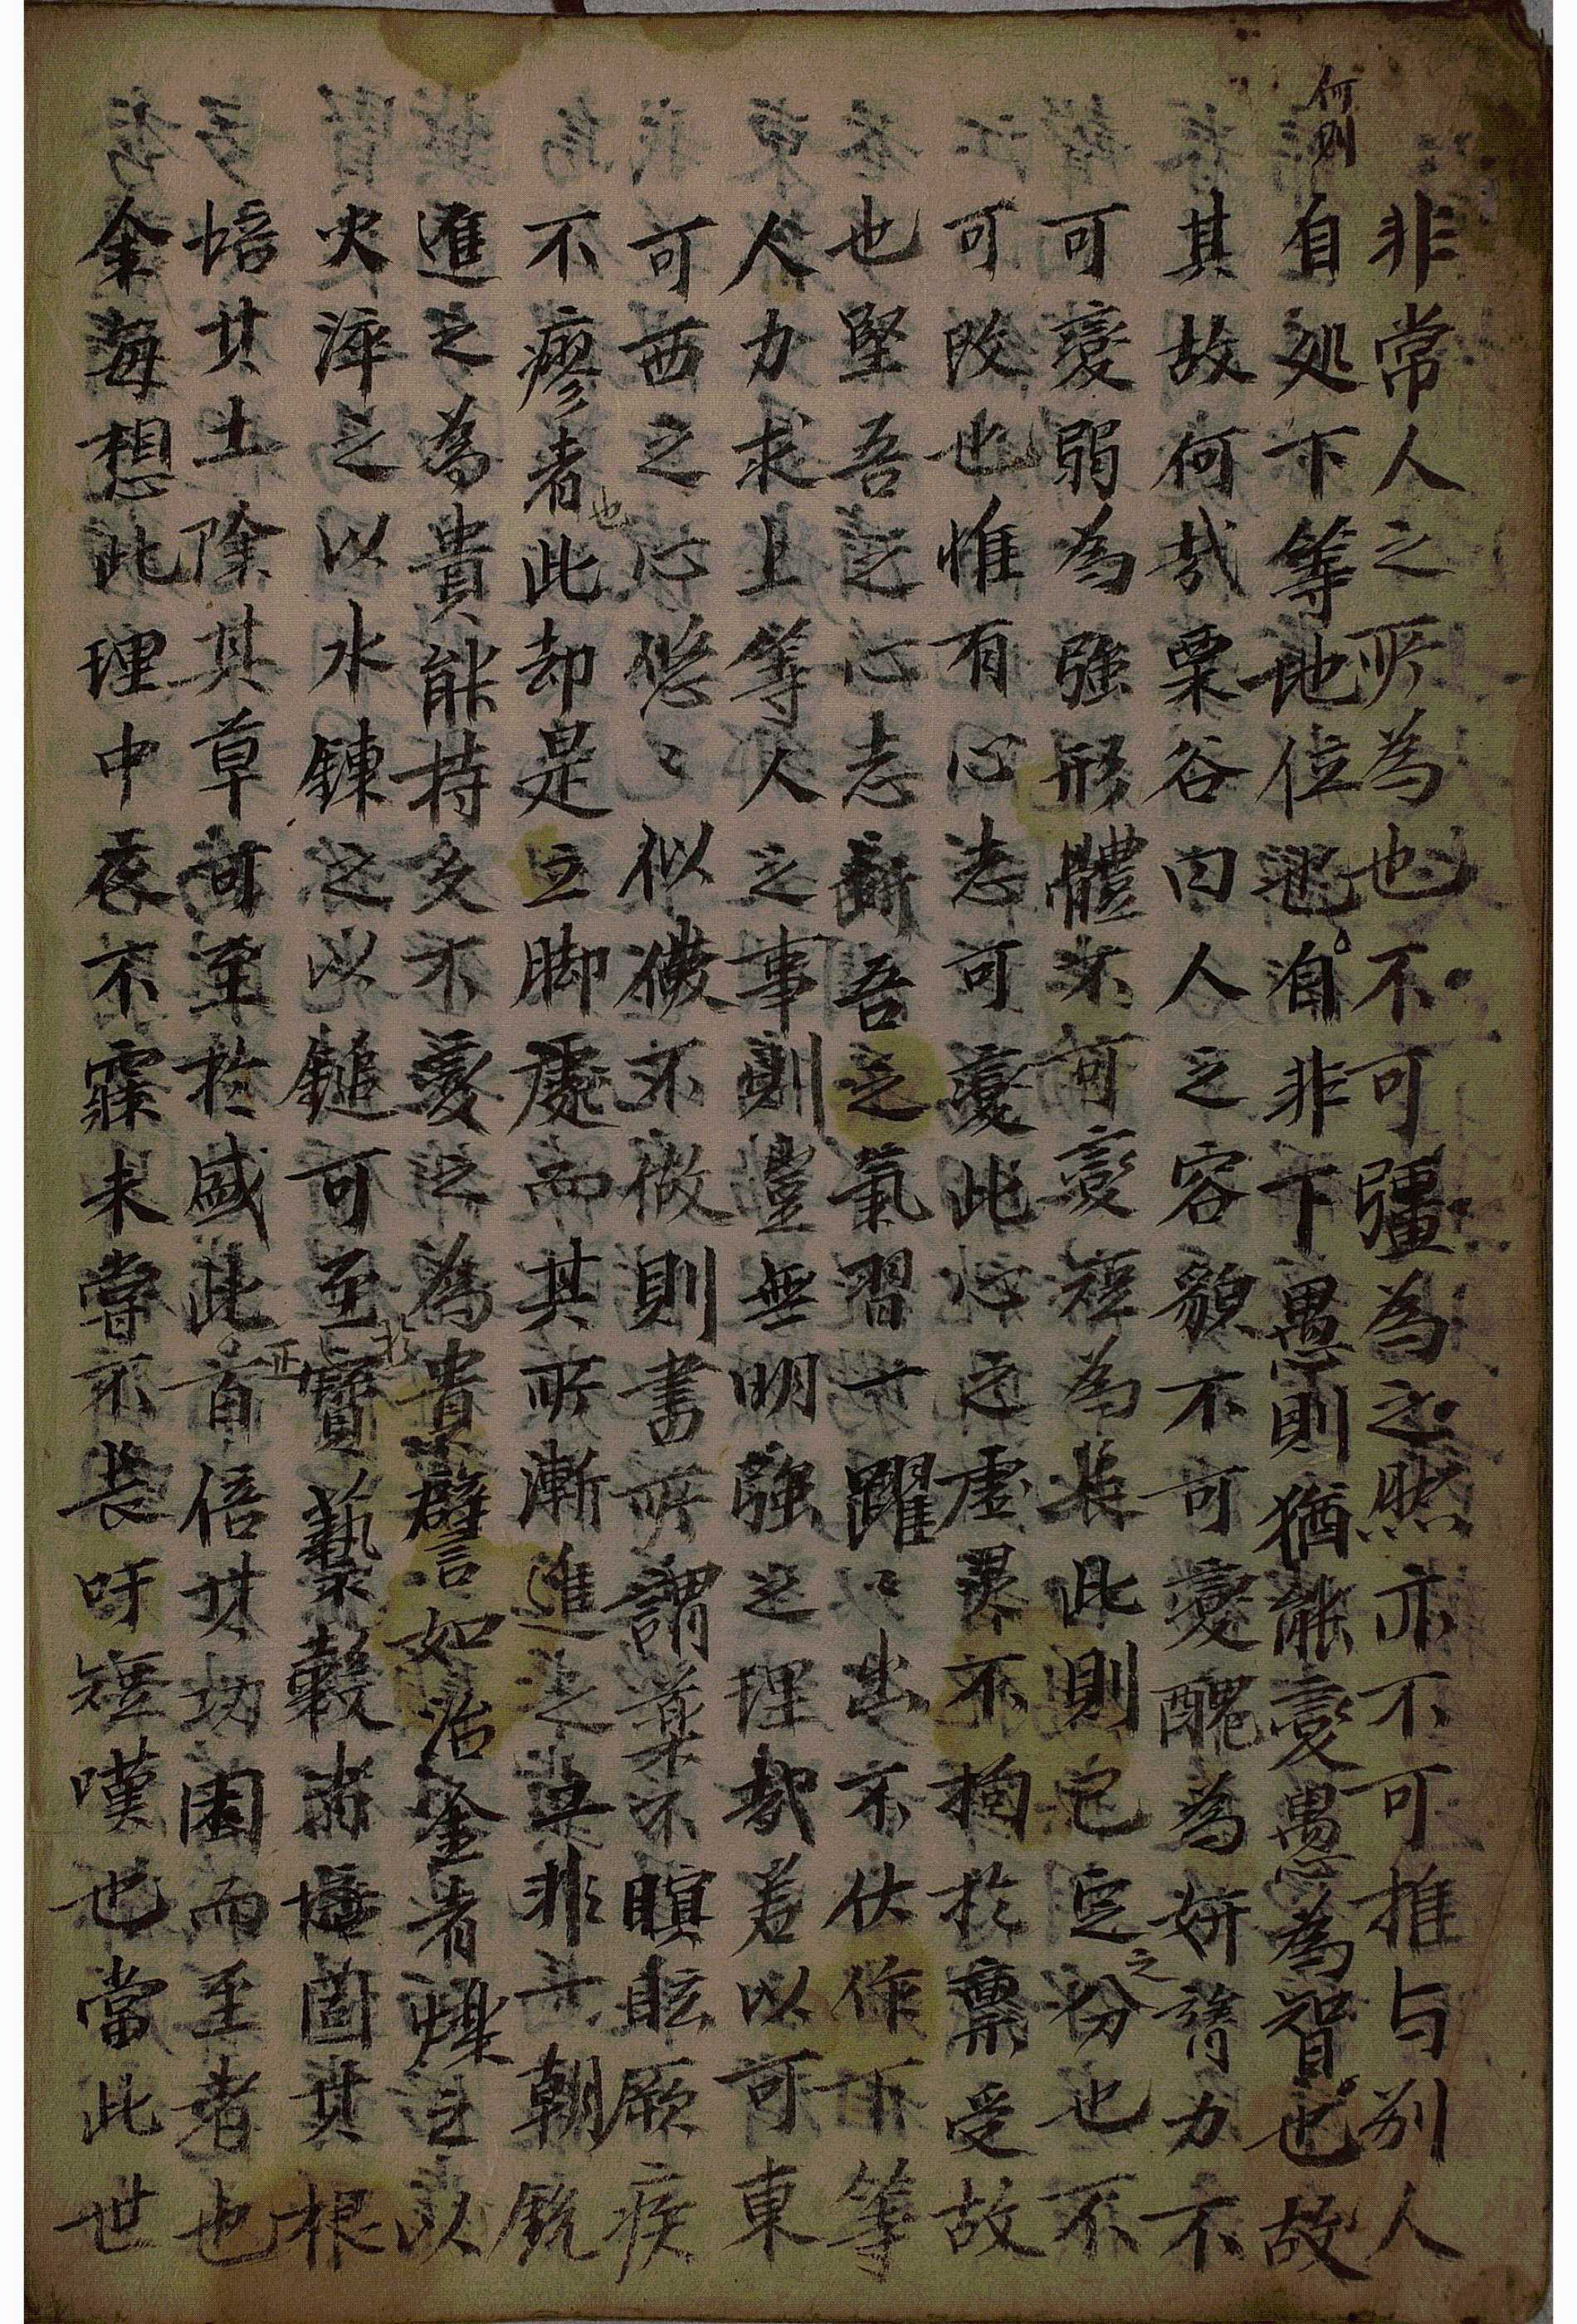 何則
非常人之所為也不可彊為之然亦不可推与別人
自処下等地位也自非下愚則猶能變愚為智也故
其故何哉栗谷曰人之容貌不可變醜為姸膂力不
可變弱為強形體不可變短為長此則已定之份也不
可改也惟有心志可變此心之虛灵不拘於禀受故
也堅吾之心志斬吾之氣習一躍〻出不伏作下等
人力求上等人之事則豈無明強之理哉若以可東
可西之心悠〻似儎不做則書所謂藥不瞑眩厥疾
不瘳者也此却是立脚處而其所漸進之具非一朝銳
進之為貴能持久不變之為貴譬如治金者爍之以
火淬之以水鍊之以鎚可至寶藝穀者培菑其根
培其土除其草可至於盛此首倍其功困而至者也
余每想此理中夜不寐未嘗不長吁短嘆也當此世